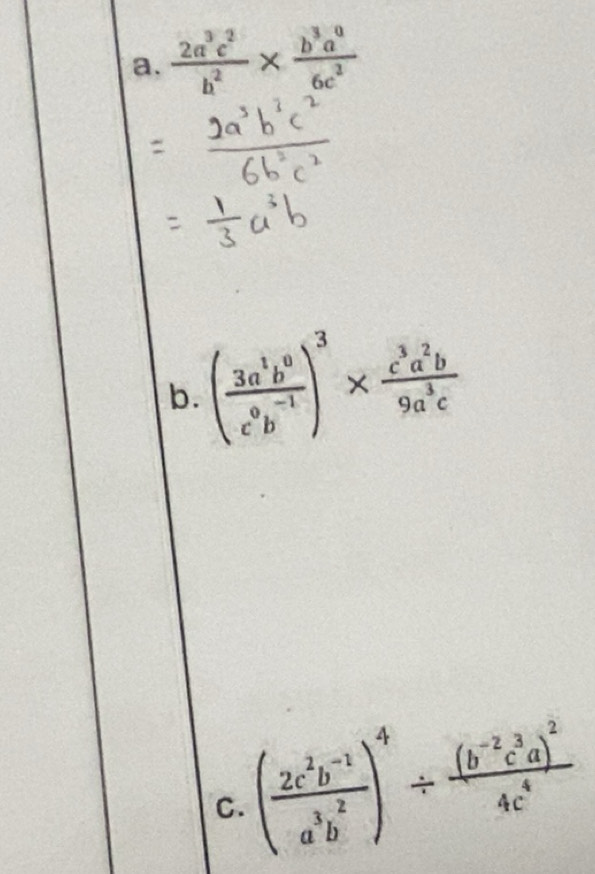 a. \frac{2a^3c^2}{b^2} × \frac{b^3a^0}{6c^2}
= \frac{2a^3b^3c^2}{6b^2c^2}
= \frac{1}{3}a^3b
b. \left(\frac{3a^1b^0}{c^0b^{-1}}\right)^3 × \frac{c^3a^2b}{9a^3c}
c. \left(\frac{2c^2b^{-1}}{a^3b^2}\right)^4 ÷ \frac{(b^{-2}c^3a)^2}{4c^4}